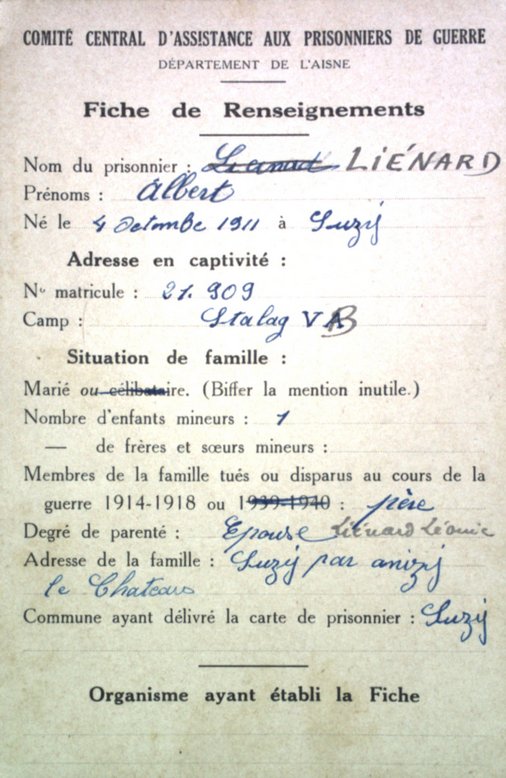 COMITÉ CENTRAL D'ASSISTANCE AUX PRISONNIERS DE GUERRE
DÉPARTEMENT DE L'AISNE
Fiche de Renseignements
Nom du prisonnier : LIÉNARD
Prénoms : Albert
Né le 4 Octombe 1911 à Suzy
Adresse en captivité :
N° matricule : 21.909
Camp : Stalag V B
Situation de famille :
Marié ou célibataire. (Biffer la mention inutile.)
Nombre d'enfants mineurs : 1
— de frères et sœurs mineurs :
Membres de la famille tués ou disparus au cours de la
guerre 1914-1918 ou 1939-1940 : père
Degré de parenté : Epouse Liénard Léonie
Adresse de la famille : Suzy par anizy
le Chateau
Commune ayant délivré la carte de prisonnier : Suzy
Organisme ayant établi la Fiche